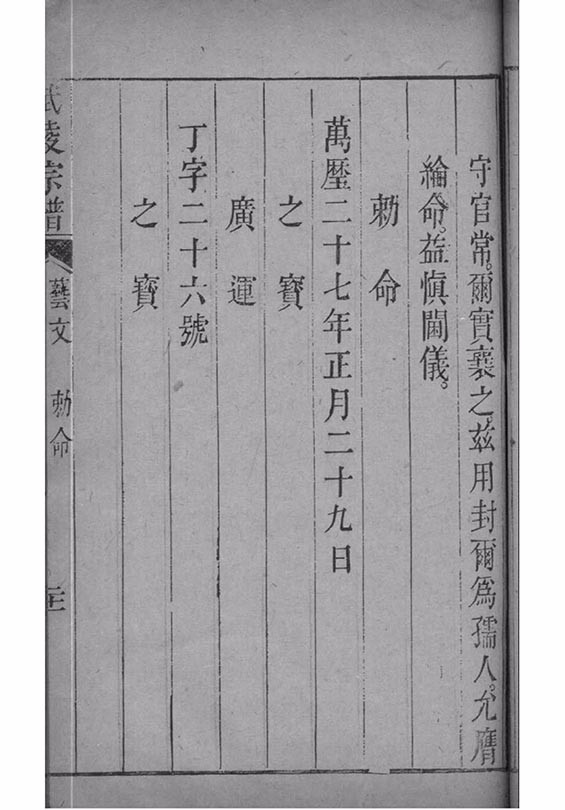 守官常。爾實襄之、茲用封爾爲孺人。允膺
綸命。益慎閫儀。
勅命
萬曆二十七年正月二十九日
之寶
廣運
丁字二十六號
之寶
武陵宗譜 藝文 勅命